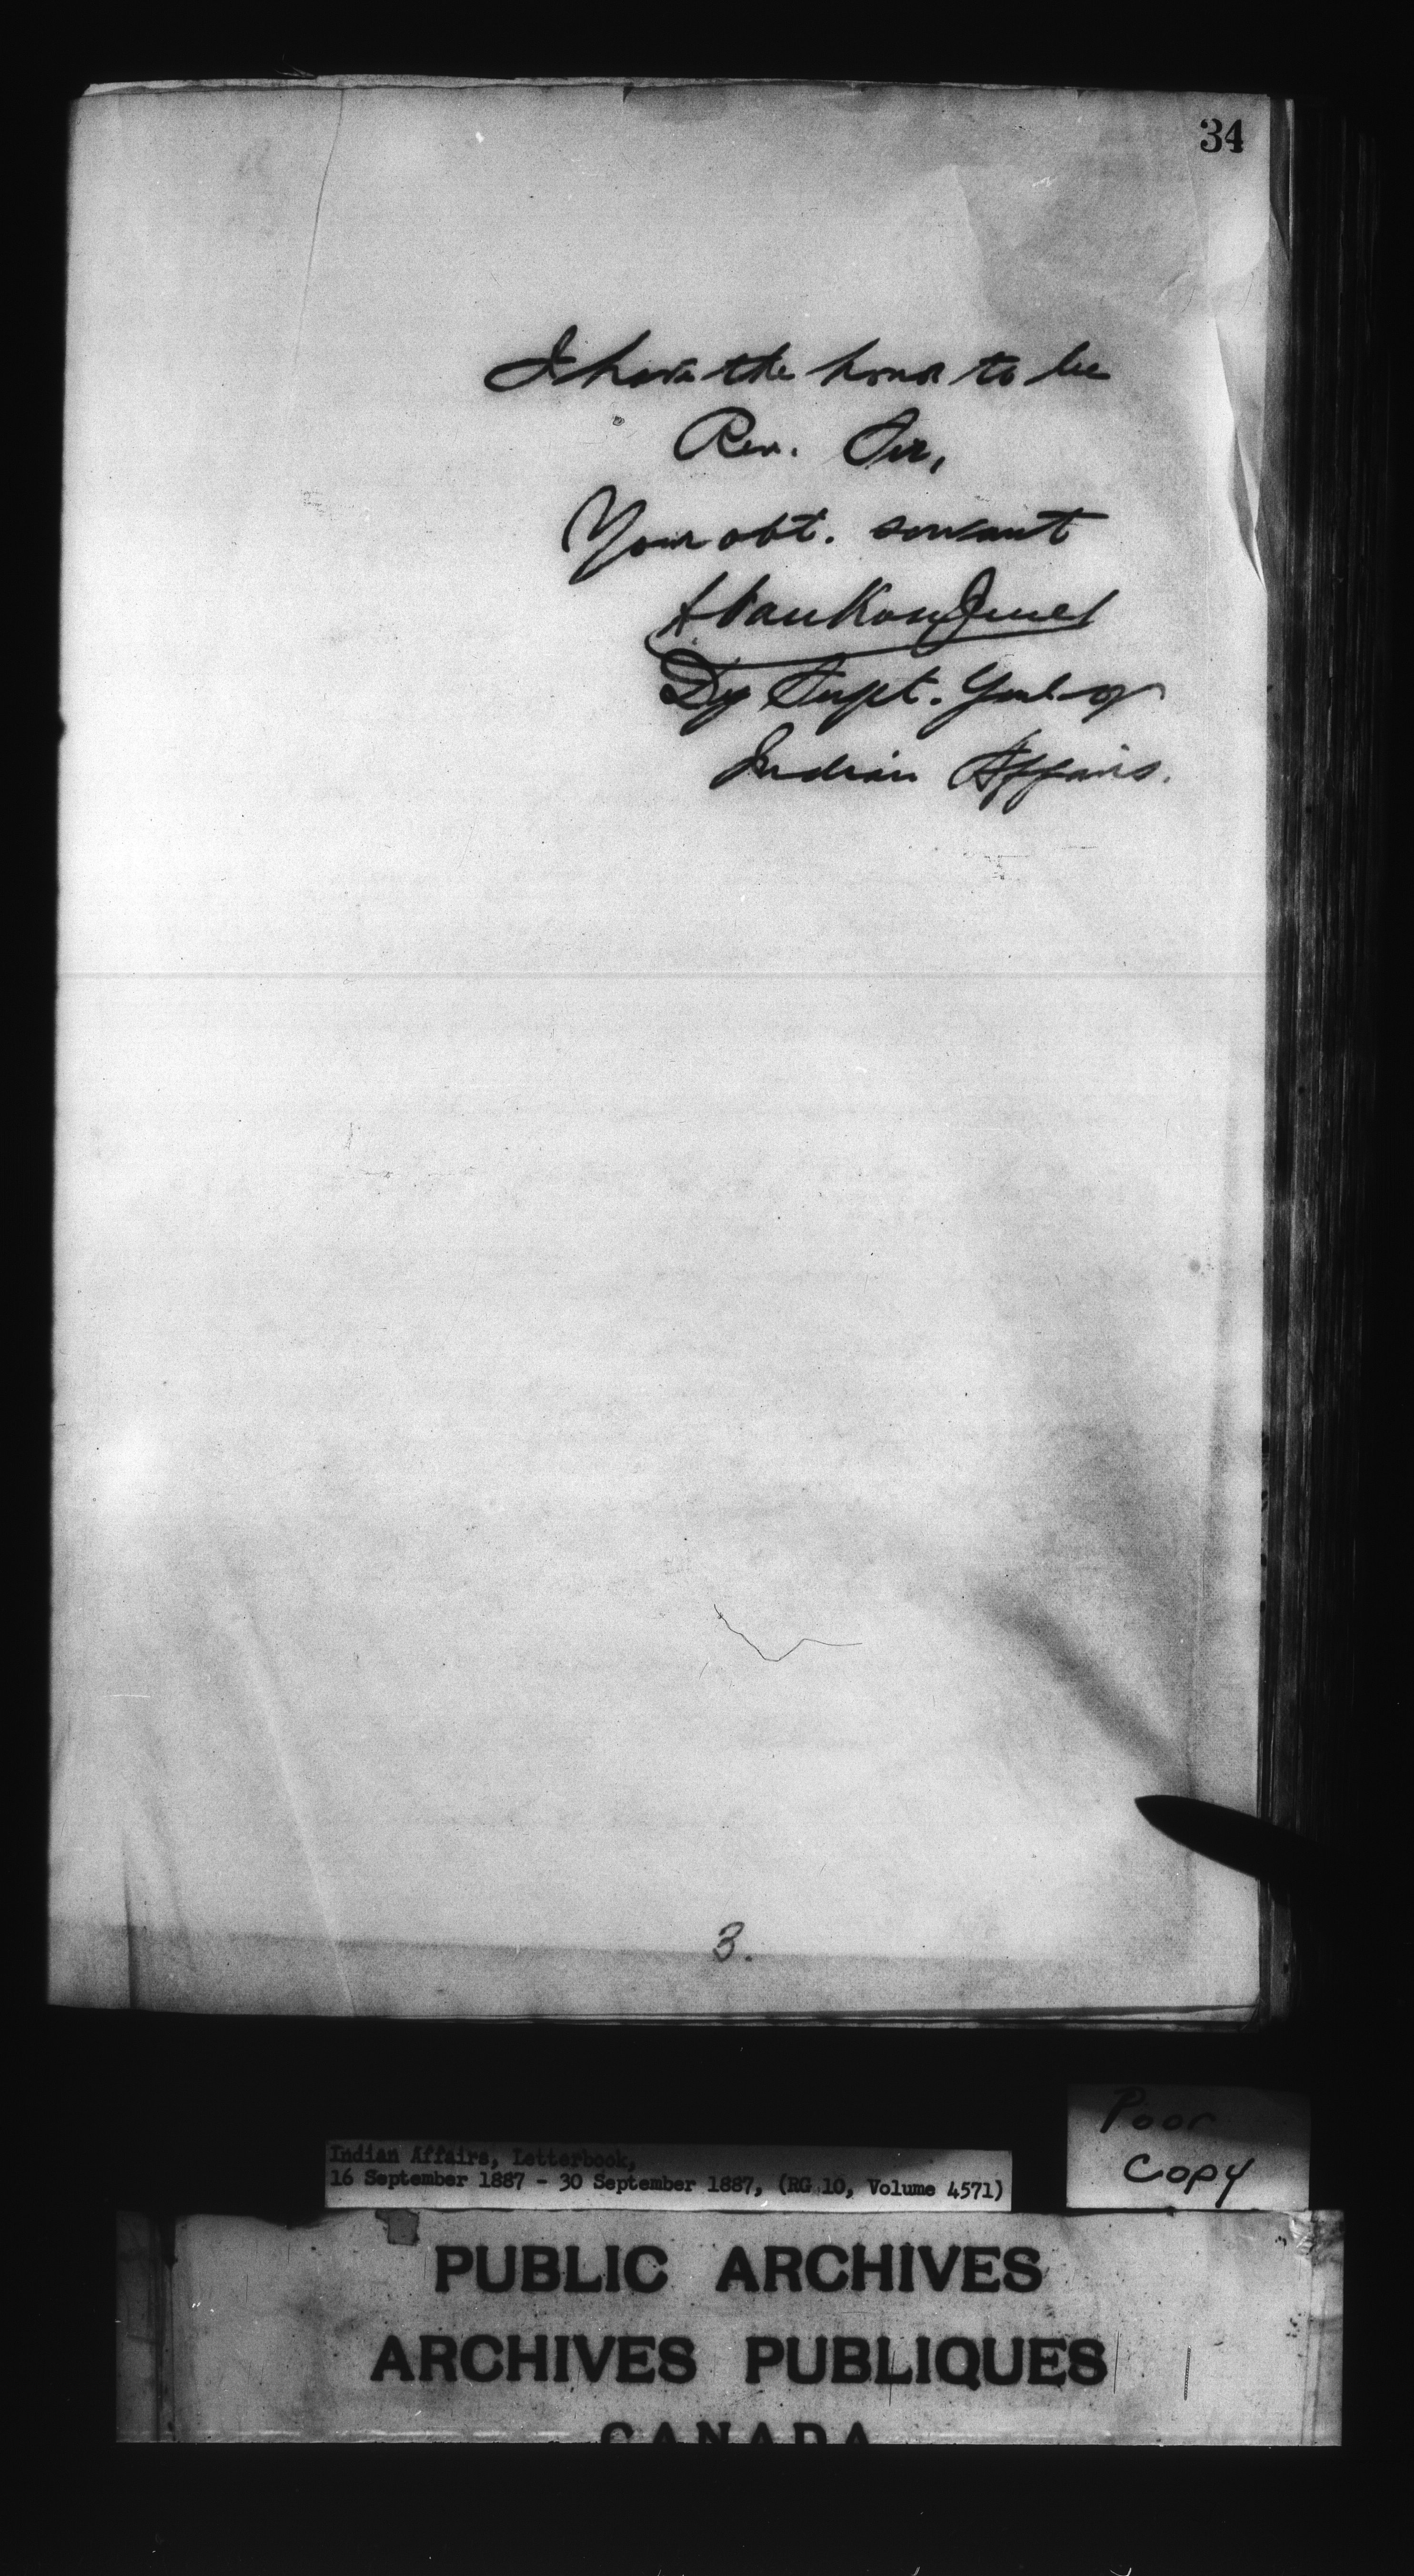 34
I have the honor to be
Rev. Sir,
Your obt. servant
L. VanKoughnet
Dy Supt. Genl. of
Indian Affairs.
3.
Poor
Copy
Indian Affairs, Letterbook,
16 September 1887 - 30 September 1887, (RG 10, Volume 4571)
PUBLIC ARCHIVES
ARCHIVES PUBLIQUES
CANADA